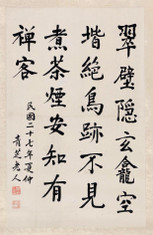 翠壁隱玄龕空
堦絕鳥跡不見
煮茶煙安知有
禪客
民國二十七年夏仲
青芝老人